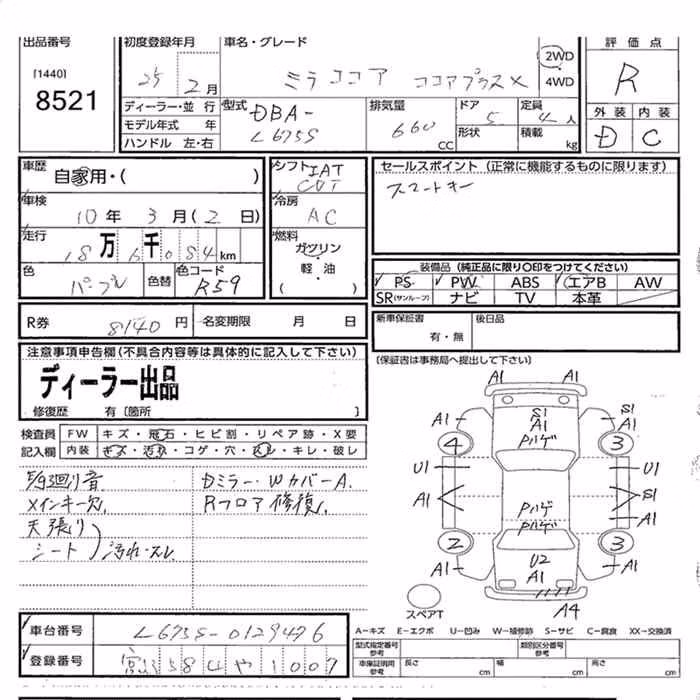 出品番号
[1440]
8521
初度登録年月
25 2月
車名・グレード
ミラココア ココアプラスX
2WD
4WD
評価点
R
外装 内装
D C
ディーラー・並行
モデル年式 年
ハンドル 左・右
型式
DBA-
L675S
排気量
660 CC
ドア
5
形状
定員
4人
積載
kg
車歴
自家用・( )
車検
10年 3月(2日)
走行
18万6千084km
色
パープル
色替
色コード
R59
シフト IAT
CVT
冷房
AC
燃料
ガソリン
軽・油
( )
セールスポイント(正常に機能するものに限ります)
スマートキー
装備品(純正品に限り○印をつけてください)
PS PW ABS エアB AW
SR(サンルーフ) ナビ TV 本革
R券 8140円
名変期限 月 日
新車保証書
有・無
後日品
(保証書は事務局へ提出して下さい)
注意事項申告欄(不具合内容等は具体的に記入して下さい)
ディーラー出品
修復歴 有〔箇所 〕
検査員
記入欄
FW キズ・飛石・ヒビ割・リペア跡・X要
内装 キズ・汚れ・コゲ・穴・スレ・キレ・破レ
回り音
メインキー欠.
天張り
シート
汚れ・スレ
Dミラー・WカバーA.
Rフロア修復.
A1
A1
A1
S1
A1
Pハゲ
S1
A1
4
3
U1
U1
A1
S1
A1
Pハゲ
Pハゲ
2
3
U2
A1
A1
A1
A4
スペアT
A-キズ E-エクボ U-凹み W-補修跡 S-サビ C-腐食 XX-交換済
車台番号
L675S-0129476
登録番号
宮城584や1007
型式指定番号
参考
類別区分番号
参考
車庫証明用
参考
長さ cm
幅 cm
高さ cm